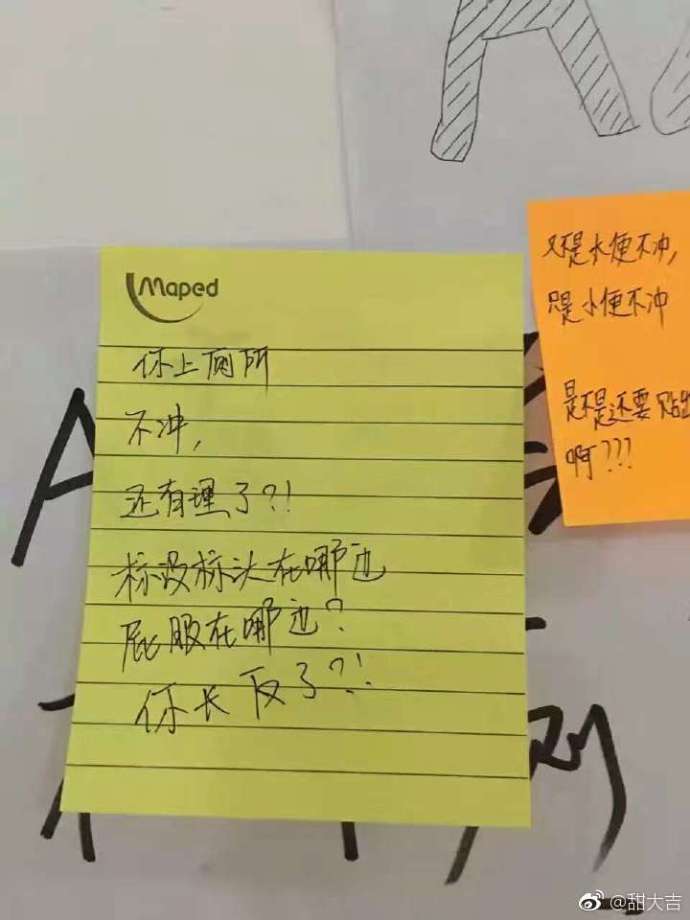 Maped
你上厕所
不冲，
还有理了?!
标没标头在哪边
屁股在哪边?
你长反了?!
又不是大便不冲，
只是小便不冲
是不是还要贴出
啊???
@甜大吉